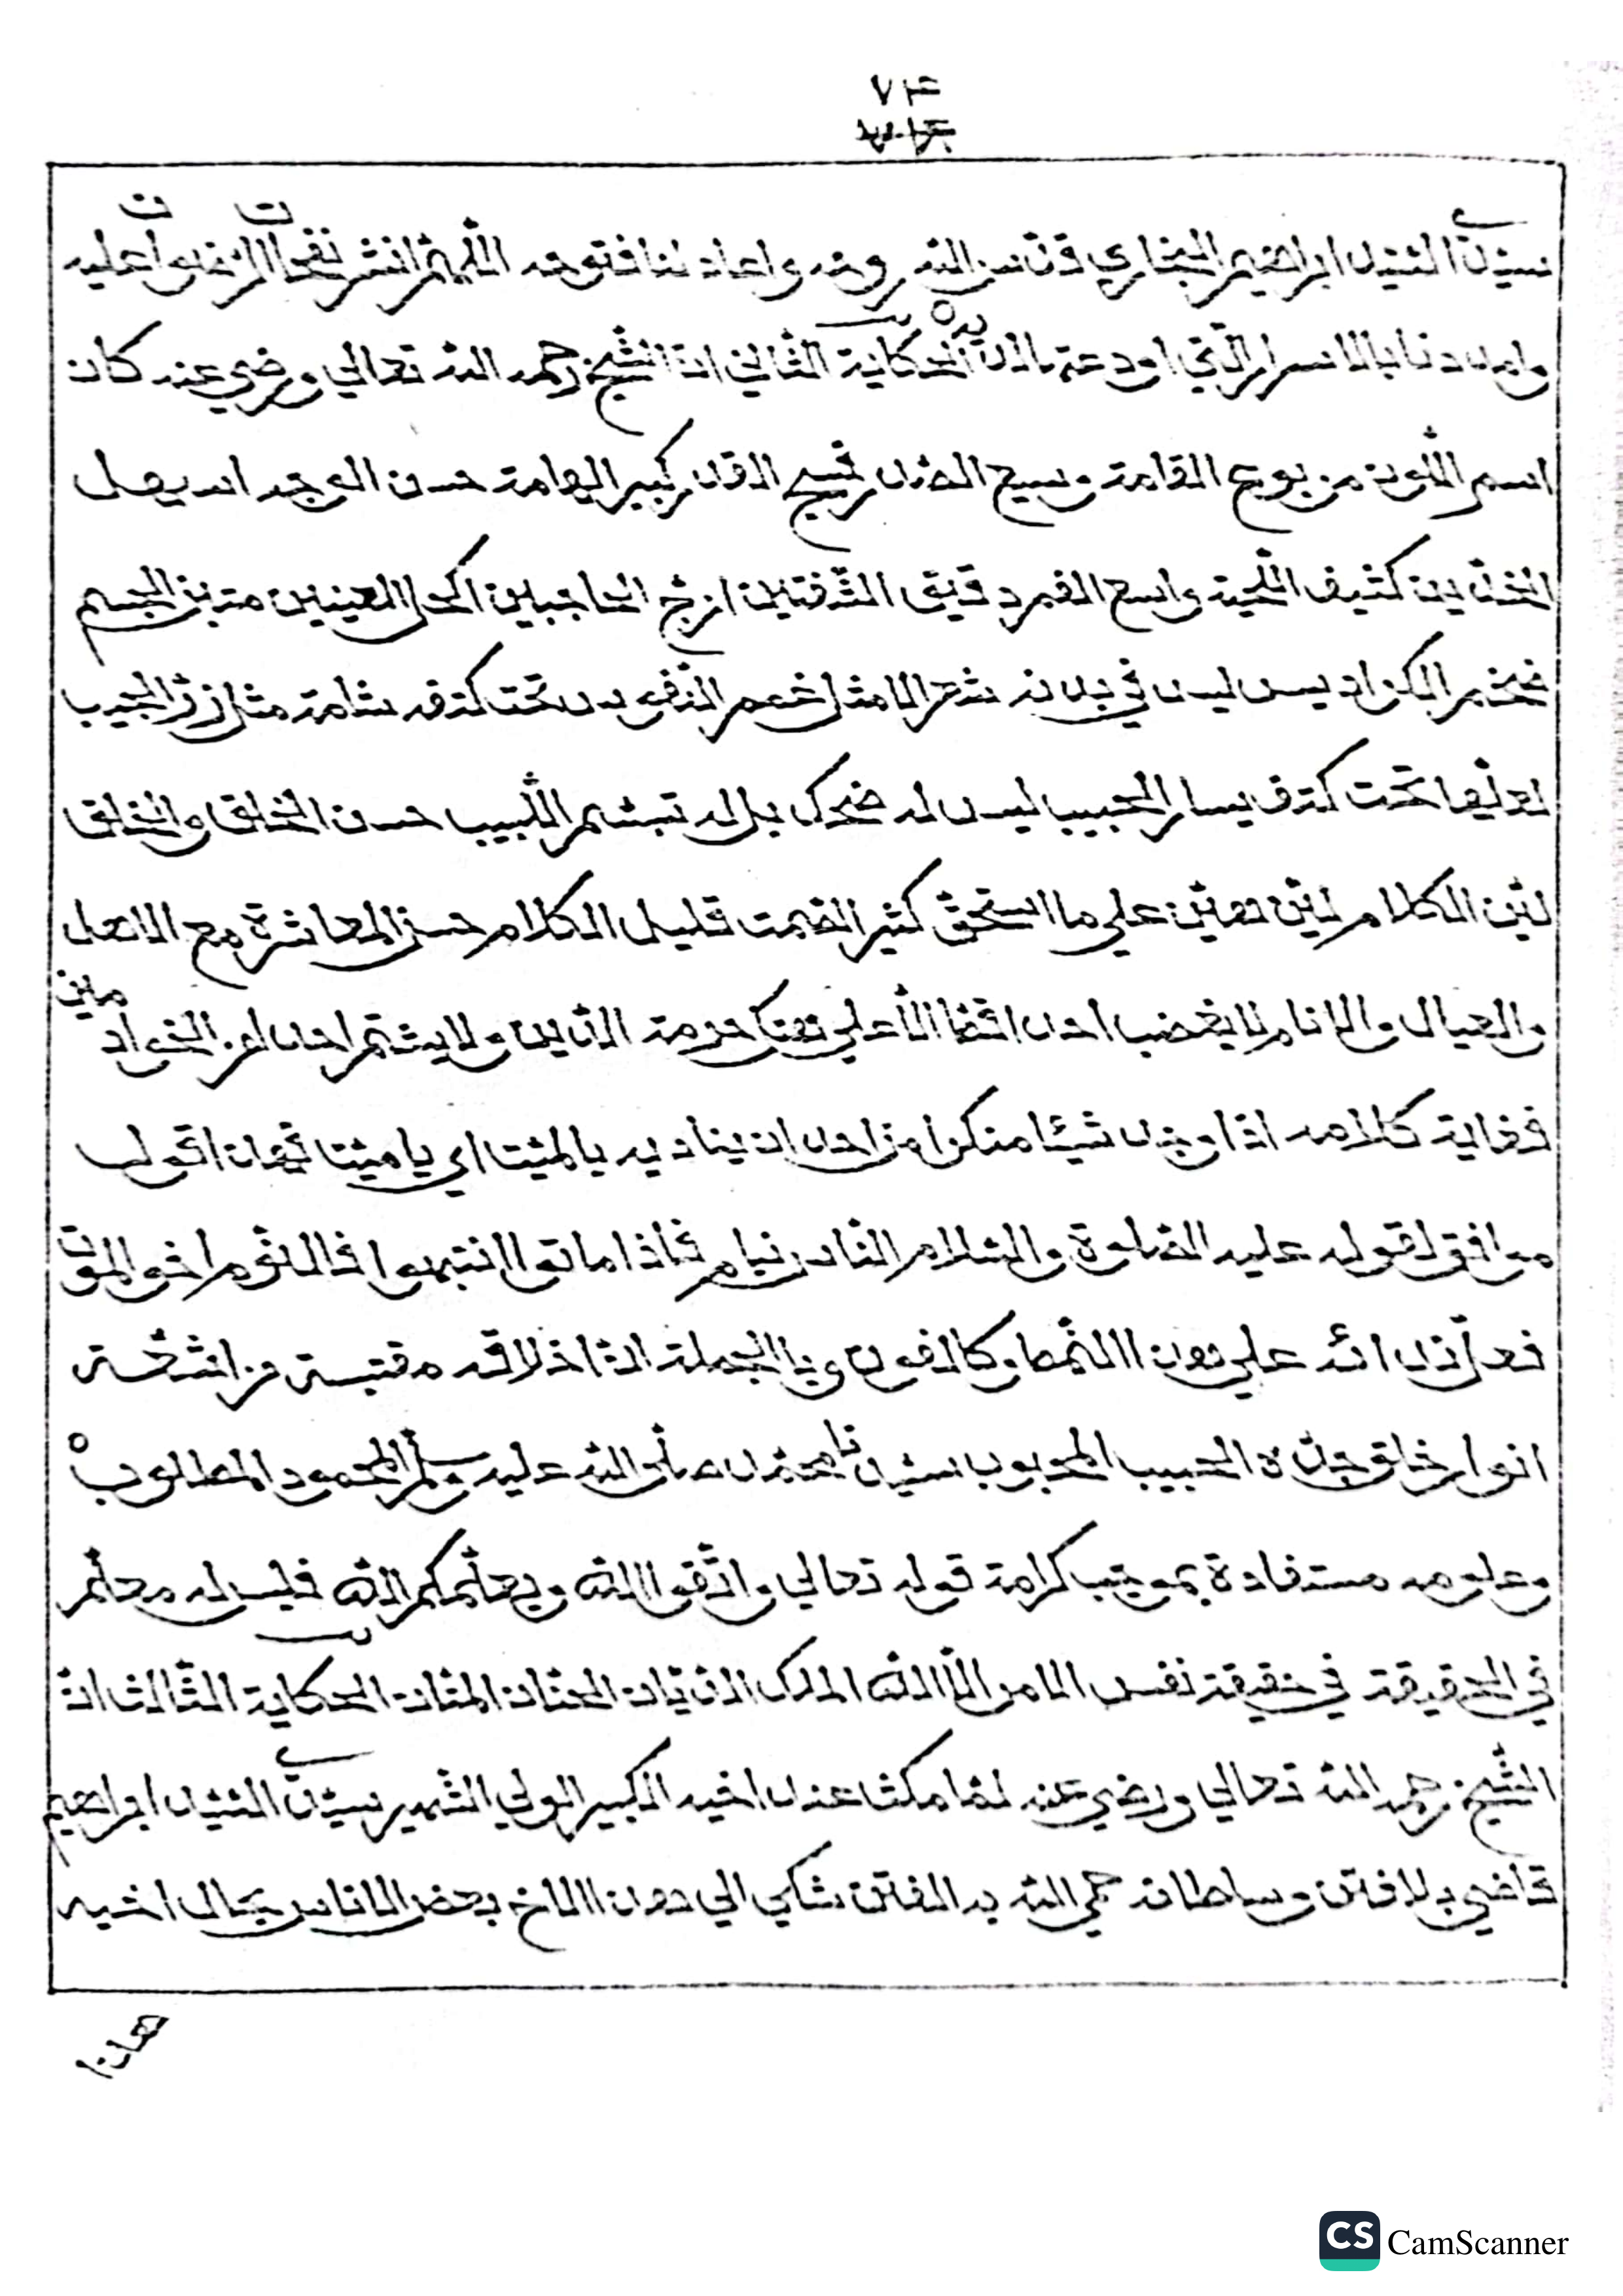 ٧٤
سيدي السيد ابراهيم البخاري قدس الله روحه واعاد لنا فتوحه اللهم انشر نفحات الرضوان عليه
وامددنا بالاسرار التي اودعتها لديه الحكاية الثاني ان الشيخ رحمه الله تعالي ورضي عنه كان
اسمر اللون مربوع القامة وسيع الصدر فسيح القدر كبير الهامة حسن الوجه اسيل
الخدين كثيف اللحية واسع الفم رقيق الشفتين ازج الحاجبين اكحل العينين متين الجسم
ضخم الكراديس ليس في بدنه شعر الا مثل خصر النفر بدا تحت كتفه شامة مثل زر الجيب
لعلها تحت كتف يسار الحبيب ليس له ضحك بل له تبسم اللبيب حسن الخلق والخلق
لين الكلام لين هين علي ما استحق كثير الصمت قليل الكلام حسن المعاشرة مع الاهل
والعيال والانام لا يغضب احدا قط الا علي هتك حرمة الدين ولا يشتم احدا من الخوادمين
فغاية كلامه اذا وجد شيئا منكرا من احد ان يناديه يا لميت اي يا ميت فهان اقول
موافق لقوله عليه الصلوة والسلام الناس نيام فاذا ماتوا انتبهوا فالنوم اخو الموت
فعل ذلك انه علي هون النمط وكالفوه وبالجملة ان اخلاقه مقتبسة من اشعة
انوار خلق جده الحبيب المحبوب سيدنا محمد صلي الله عليه وسلم المحمود المطلوب
وعلومه مستفادة بموجب كرامة قوله تعالي واتقوا الله ويعلمكم الله فليس له معلم
في الحقيقة في حقيقة نفس الامر الا الله الملك الديان الحنان المنان الحكاية الثالث ان
الشيخ رحمه الله تعالي ورضي عنه لما مكث عند اخيه الكبير الولي الشهير سيدي السيد ابراهيم
قاضي بلافتن وسلطانه حمي الله به الفتن شكي الي هون الاخ بعض الناس بحال اخيه
هون
CS CamScanner